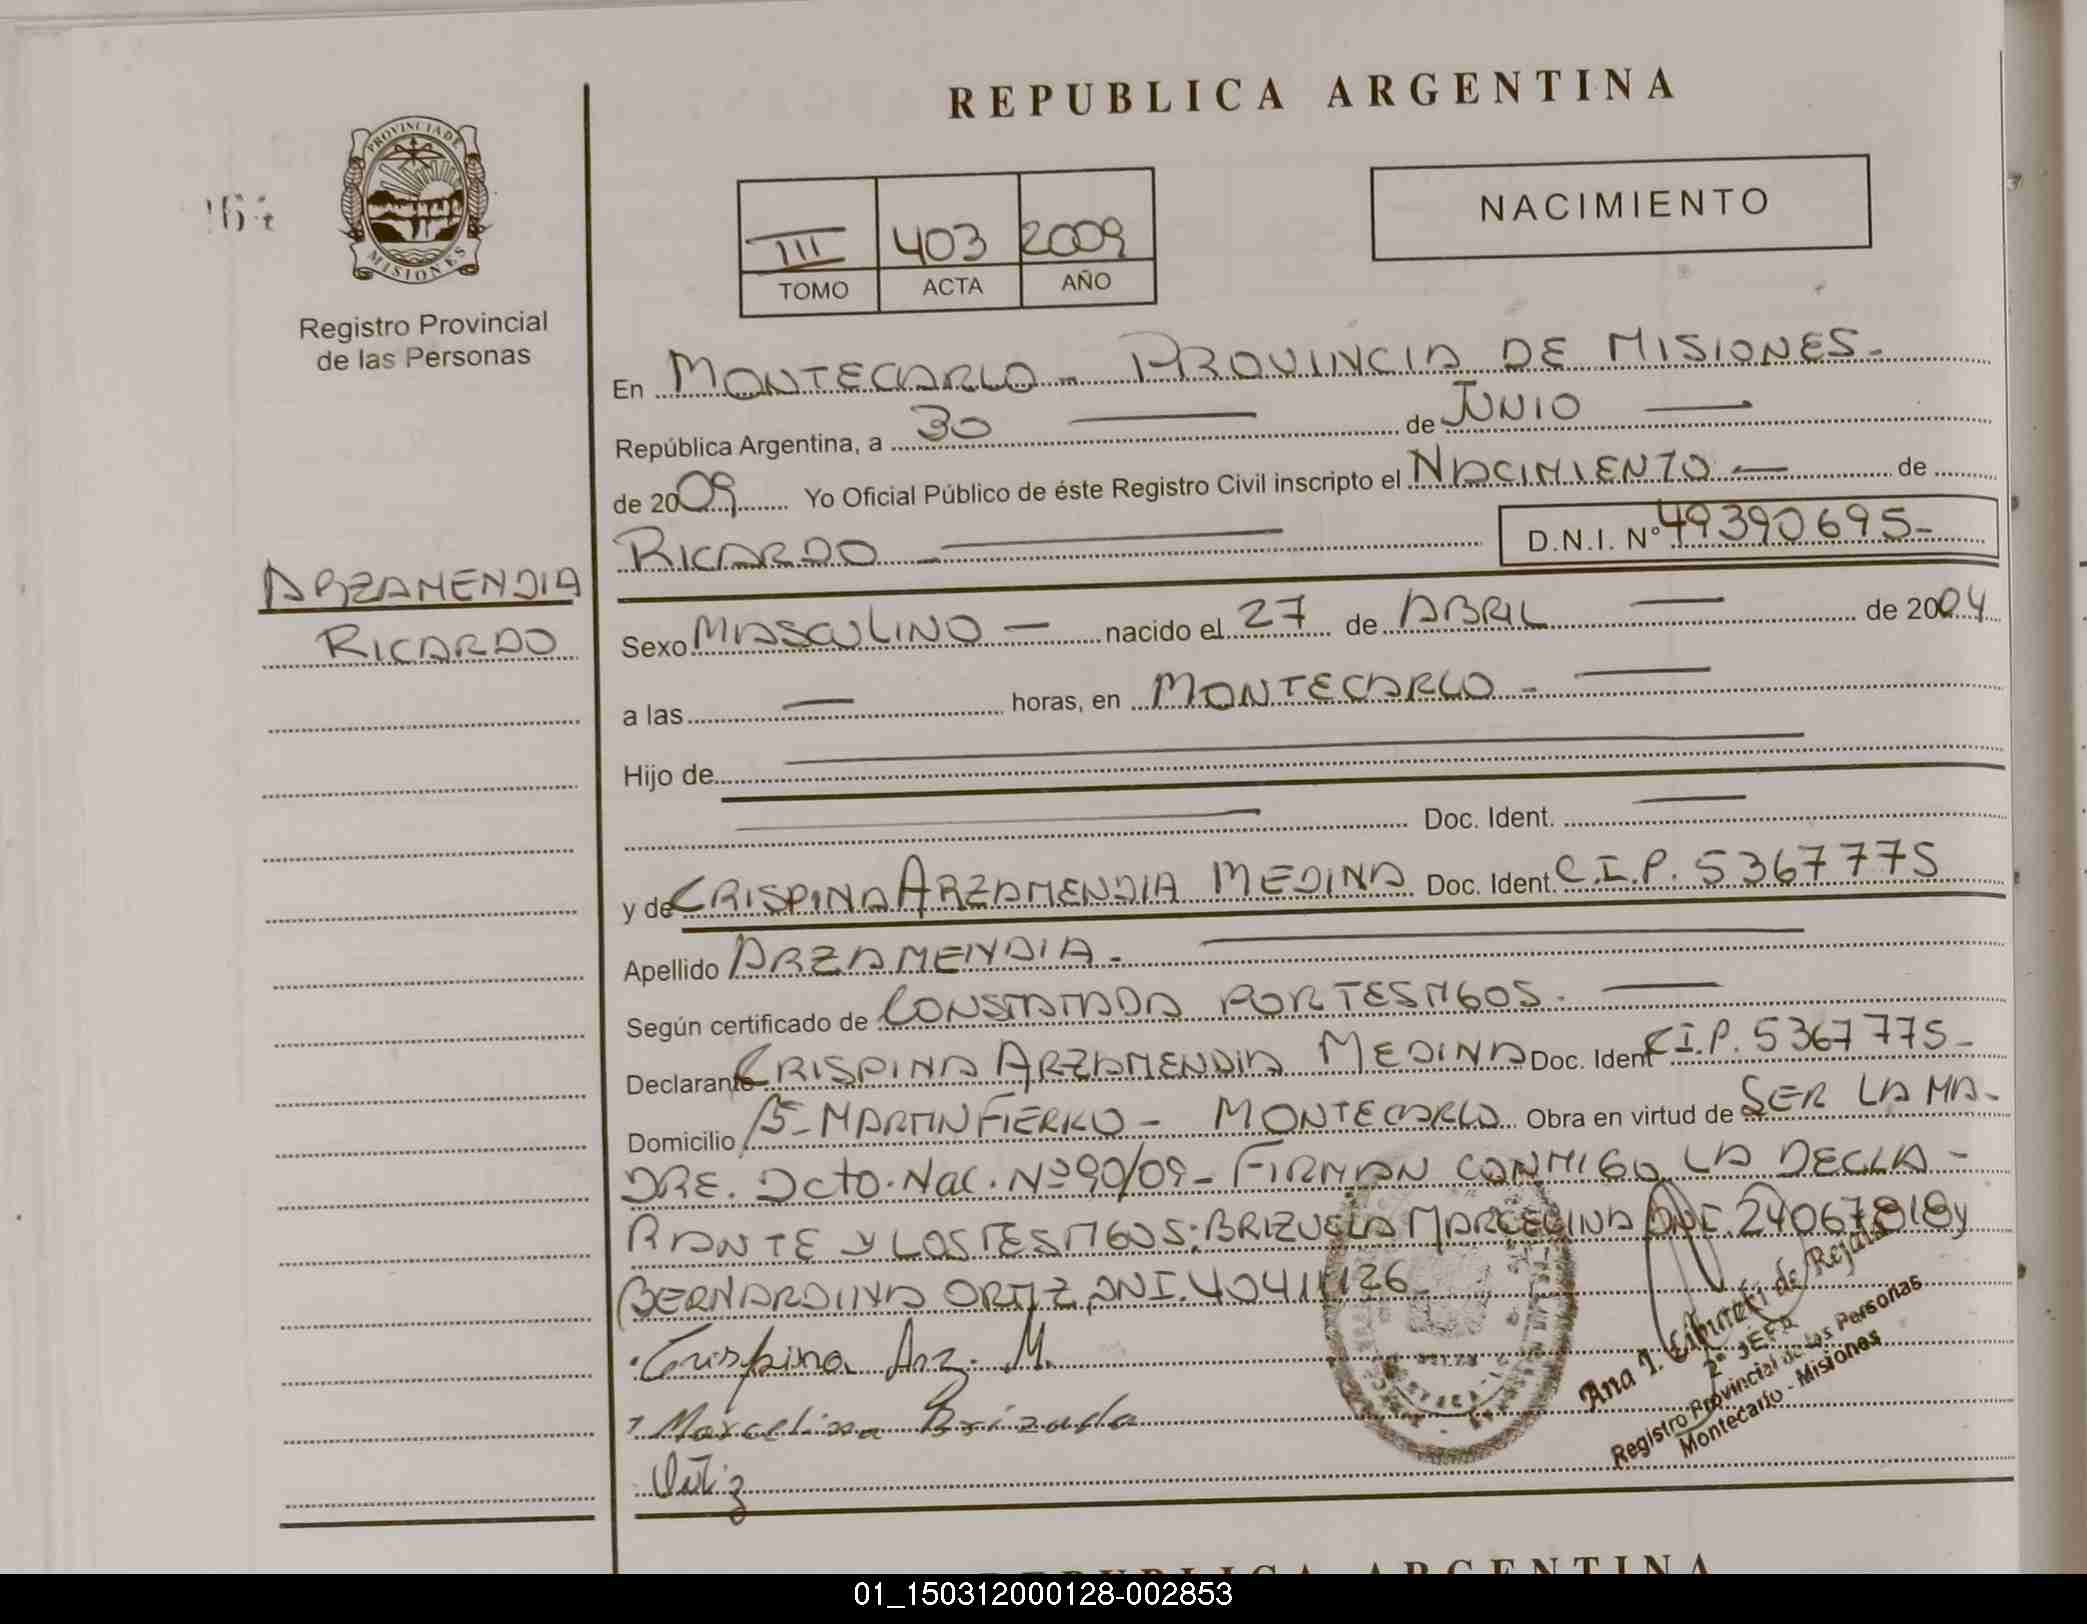 REPUBLICA ARGENTINA
PROVINCIA DE
MISIONES
Registro Provincial
de las Personas
NACIMIENTO
III 403 2009
TOMO ACTA AÑO
En MONTECARLO - PROVINCIA DE MISIONES-
República Argentina, a 30 — de JUNIO —
de 2009 Yo Oficial Público de éste Registro Civil inscripto el NACIMIENTO — de
RICARDO — D.N.I. Nº 49390695-
ARZAMENDIA
RICARDO
Sexo MASCULINO — nacido el 27 de ABRIL — de 2004
a las — horas, en MONTECARLO - —
Hijo de —
— Doc. Ident. —
y de CRISPINA ARZAMENDIA MEDINA Doc. Ident. C.I.P. 5367775
Apellido ARZAMENDIA - —
Según certificado de CONSTATADA POR TESTIGOS. —
Declarante CRISPINA ARZAMENDIA MEDINA Doc. Ident C.I.P. 5367775-
Domicilio Bº- MARTIN FIERRO - MONTECARLO Obra en virtud de SER LA MA-
DRE. Dcto. Nac. Nº 90/09- FIRMAN CONMIGO LA DECLA-
RANTE Y LOS TESTIGOS: BRIZUELA MARCELINA DNI. 24067818 y
BERNARDINA ORTIZ DNI. 40411126
Crispina Arz. M.
Marcelina Brizuela
Ortiz
Ana I. de Rejala
2º JEFA
Registro Provincial de las Personas
Montecarlo - Misiones
REPUBLICA ARGENTINA
01_150312000128-002853